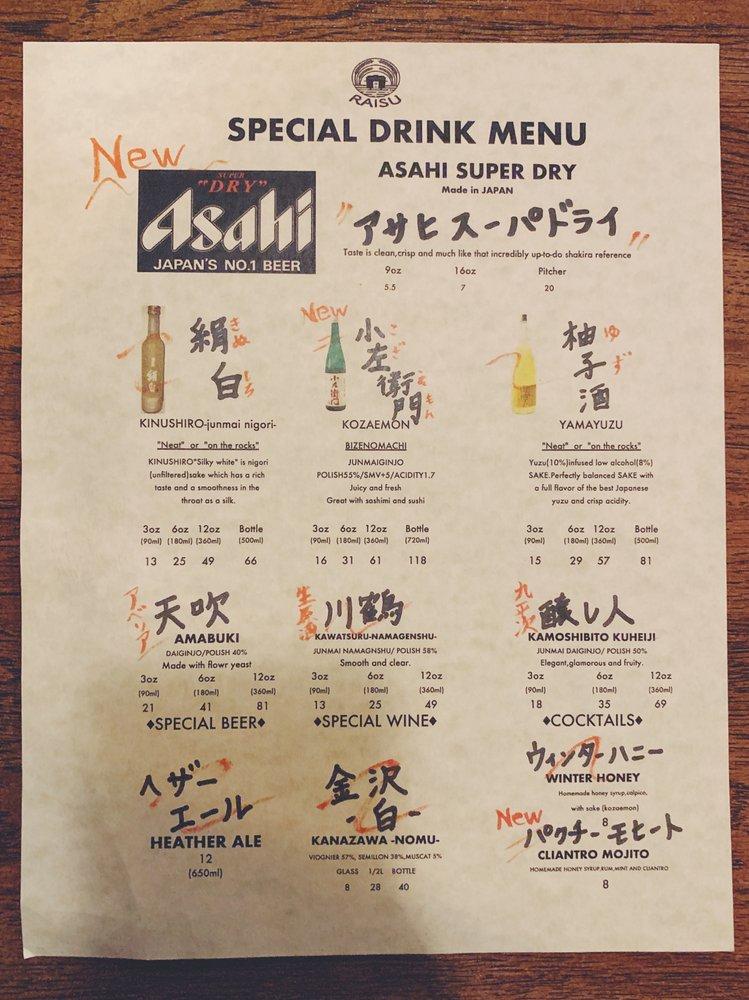 RAISU
SPECIAL DRINK MENU
New
SUPER
"DRY"
Asahi
JAPAN'S NO.1 BEER
ASAHI SUPER DRY
Made in JAPAN
"アサヒスーパドライ"
Taste is clean,crisp and much like that incredibly up-to-do shakira reference
9oz 16oz Pitcher
5.5 7 20
絹白
きぬ
しろ
絹白
KINUSHIRO-junmai nigori-
"Neat" or "on the rocks"
KINUSHIRO"Silky white" is nigori
(unfiltered)sake which has a rich
taste and a smoothness in the
throat as a silk.
3oz 6oz 12oz Bottle
(90ml) (180ml) (360ml) (500ml)
13 25 49 66
New
小左衛門
こざ
えもん
小左衛門
KOZAEMON
BIZENOMACHI
JUNMAIGINJO
POLISH55%/SMV+5/ACIDITY1.7
Juicy and fresh
Great with sashimi and sushi
3oz 6oz 12oz Bottle
(90ml) (180ml) (360ml) (720ml)
16 31 61 118
柚子酒
ゆず
YAMAYUZU
"Neat" or "on the rocks"
Yuzu(10%)infused low alcohol(8%)
SAKE.Perfectly balanced SAKE with
a full flavor of the best Japanese
yuzu and crisp acidity.
3oz 6oz 12oz Bottle
(90ml) (180ml) (360ml) (500ml)
15 29 57 81
アベリア
天吹
AMABUKI
DAIGINJO/POLISH 40%
Made with flowr yeast
3oz 6oz 12oz
(90ml) (180ml) (360ml)
21 41 81
生原酒
川鶴
KAWATSURU-NAMAGENSHU-
JUNMAI NAMAGNSHU/ POLISH 58%
Smooth and clear.
3oz 6oz 12oz
(90ml) (180ml) (360ml)
13 25 49
九平次
醸し人
KAMOSHIBITO KUHEIJI
JUNMAI DAIGINJO/ POLISH 50%
Elegant,glamorous and fruity.
3oz 6oz 12oz
(90ml) (180ml) (360ml)
18 35 69
♦SPECIAL BEER♦
ヘザー
エール
HEATHER ALE
12
(650ml)
♦SPECIAL WINE♦
金沢
-白-
KANAZAWA -NOMU-
VIOGNIER 57%, SEMILLON 38%,MUSCAT 5%
GLASS 1/2L BOTTLE
8 28 40
♦COCKTAILS♦
ウィンターハニー
WINTER HONEY
Homemade honey syrup,calpico,
with sake (kozaemon)
8
New
パクチーモヒート
CLIANTRO MOJITO
HOMEMADE HONEY SYRUP,RUM,MINT AND CLIANTRO
8